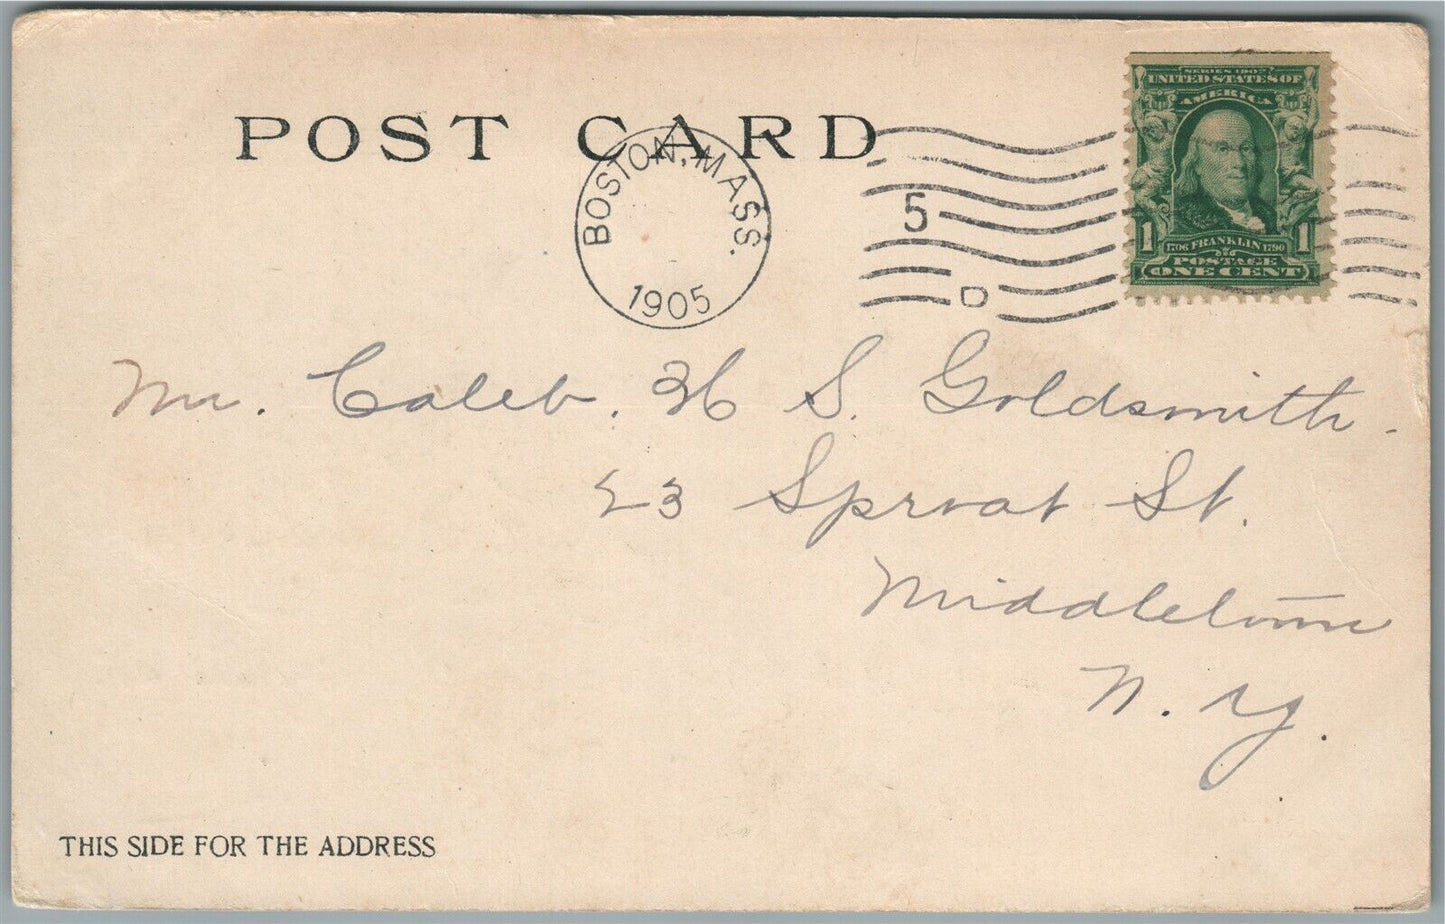 POST CARD
BOSTON, MASS.
1905
5
D
SERIES 1902
UNITED STATES OF
AMERICA
1 1706 FRANKLIN 1790 1
POSTAGE
ONE CENT
Mr. Caleb. H S. Goldsmith.
23 Sproat St.
Middletown
N. Y.
THIS SIDE FOR THE ADDRESS